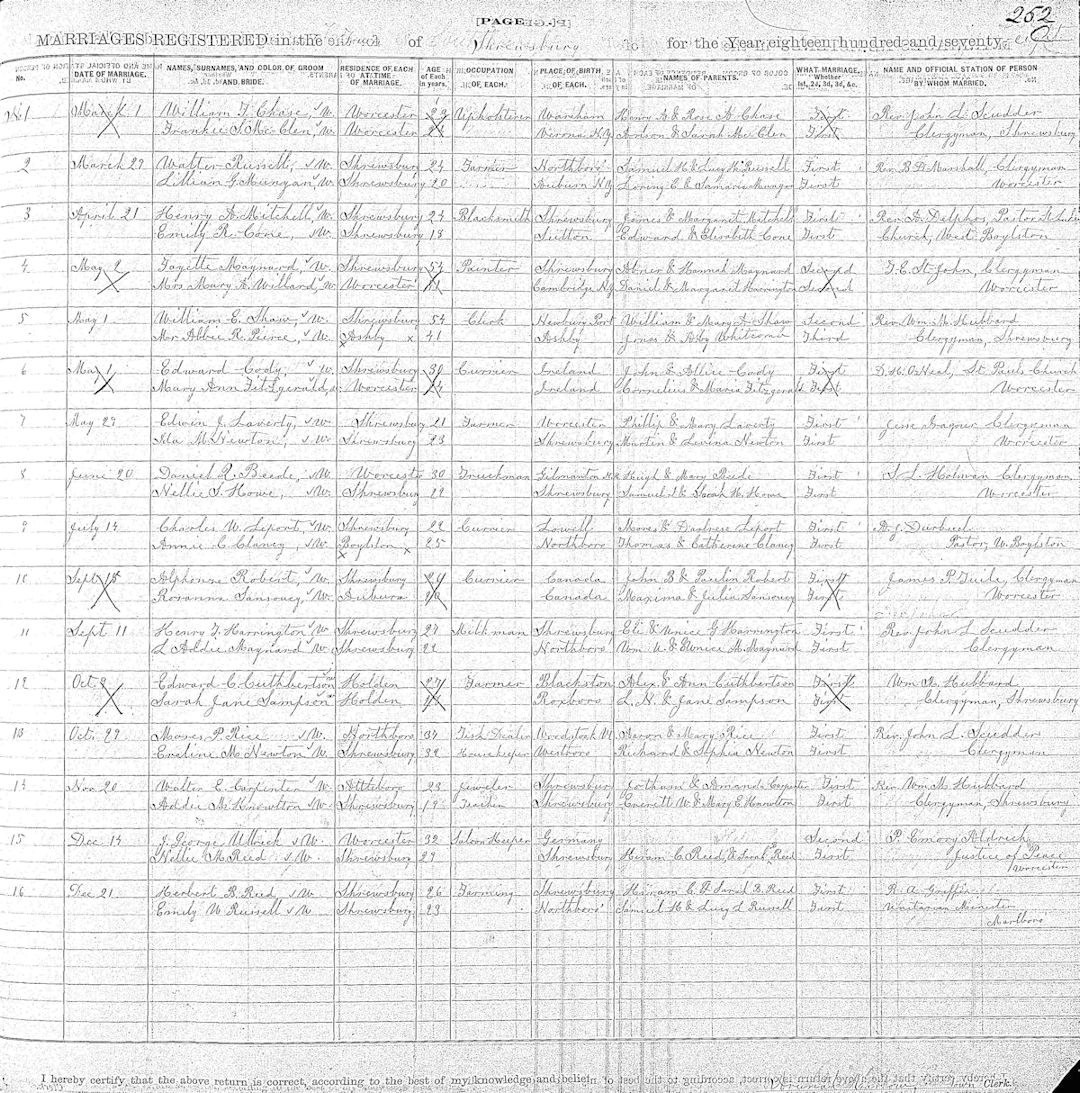 252
[PAGE
MARRIAGES REGISTERED in the of Shrewsbury for the Year eighteen hundred and seventy-eight
No. DATE OF MARRIAGE. NAMES, SURNAMES, AND COLOR OF GROOM AND BRIDE. RESIDENCE OF EACH AT TIME OF MARRIAGE. AGE of Each in years. OCCUPATION OF EACH. PLACE OF BIRTH OF EACH. NAMES OF PARENTS. WHAT MARRIAGE, Whether 1st, 2d, 3d, &c. NAME AND OFFICIAL STATION OF PERSON BY WHOM MARRIED.
No. 1 March 1 William F. Chase, W. Worcester 29 Upholsterer Wareham Henry A & Rose A. Chase First Rev. John L. Scudder
Frankie S. McClen, W. Worcester Verona N.Y. & Sarah McClen First Clergyman, Shrewsbury
2 March 27 Walter Russell, W. Shrewsbury 24 Farmer Northboro Samuel H & Lucy Russell First Rev. B. D. Marshall, Clergyman
Lillian G. Munyan, W. Shrewsbury 20 Auburn Loring First Worcester
3 April 21 Henry A. Mitchell, W. Shrewsbury 24 Blacksmith Shrewsbury James & Margaret Mitchell First Rev. A. Delphos, Pastor
Emily R. Cone, W. Shrewsbury 18 Sutton Edward & Elisabeth Cone First Church, West Boylston
4 May 2 Fayette Maynard, W. Shrewsbury 54 Painter Shrewsbury Abner & Hannah Maynard Second T. E. St. John, Clergyman
Mrs Mary A. Willard, W. Worcester Cambridge Daniel & Margaret Harrington Second Worcester
5 May 1 William E. Shaw, W. Shrewsbury 54 Clerk Newbury Port William & Mary A. Shaw Second Rev. Wm. M. Hubbard
Mrs Abbie R. Pierce, W. Ashby 41 Ashby Jonas & Abby Whitcomb Third Clergyman, Shrewsbury
6 May 1 Edward Cody, W. Shrewsbury 30 Currier Ireland John & Allice Cody First D. H. O'Neal, St. Pauls Church
Mary Ann Fitzgerald, W. Worcester 24 Ireland Cornelius & Maria Fitzgerald First Worcester
7 May 27 Edwin J. Laverty, W. Shrewsbury 21 Farmer Worcester Phillip & Mary Laverty First Jesse Wagner Clergyman
Ida M. Newton, W. Shrewsbury 23 Shrewsbury Martin & Lovina Newton First Worcester
8 June 20 Daniel R. Beede, W. Worcester 30 Truckman Gilmanton N.H. Hugh & Mary Beede First S. L. Holman Clergyman
Nellie S. Howe, W. Shrewsbury 22 Shrewsbury Samuel I. & Sarah H. Howe First Worcester
9 July 14 Charles W. Leport, W. Shrewsbury 22 Currier Lowell Moses & Leport First A. J.
Annie C. Clancy, W. Boylston 25 Northboro Thomas & Catherine Clancy First Pastor, W. Boylston
10 Sept 15 Alphonze Robert, W. Shrewsbury 24 Currier Canada John B & Paulin Robert First James P. Tuite, Clergyman
Roxanna Sansoucy, W. Auburn 20 Canada Maxima & Julia Sansoucy First Worcester
11 Sept 11 Henry F. Harrington W. Shrewsbury 27 Milkman Shrewsbury Eli & Unice G Harrington First Rev. John L. Scudder
L Addie Maynard W. Shrewsbury 21 Northboro Wm U. & Eunice M. Maynard First Clergyman
12 Oct 2 Edward C. Cuthbertson Holden 27 Farmer Blackston Alex & Ann Cuthbertson First Wm. Hubbard
Sarah Jane Sampson Holden Roxboro L. H. & Jane Sampson First Clergyman, Shrewsbury
13 Oct. 29 Moses P. Rice W. Northboro 34 Fish Dealer Woodstock Vt. Aaron & Mary Rice First Rev. John L. Scudder
Eveline M. Newton W. Shrewsbury 32 Housekeeper Westboro Richard & Sophia Newton First Clergyman
14 Nov. 20 Walter E. Carpenter W. Attleboro 23 Jeweler Shrewsbury Jotham & Amanda Carpenter First Rev. Wm M. Hubbard
Addie M. Knowlton W. Shrewsbury 19 Teacher Shrewsbury Everett W. & Mary E. Knowlton First Clergyman, Shrewsbury
15 Dec 14 J. George Ullrick W. Worcester 32 Saloon Keeper Germany Second P. Emory Aldrich
Nellie A. Reed W. Shrewsbury 27 Shrewsbury Hiram C. Reed, & Sarah Reed First Justice of Peace
Worcester
16 Dec 21 Herbert B. Reed W. Shrewsbury 26 Farming Shrewsbury Hiram C. & Sarah B. Reed First R. A. Griffin
Emily W Russell W Shrewsbury 23 Northboro Samuel H & Lucy L Russell First Unitarian Minister
Marlboro
I hereby certify that the above return is correct, according to the best of my knowledge and belief.
Town Clerk.